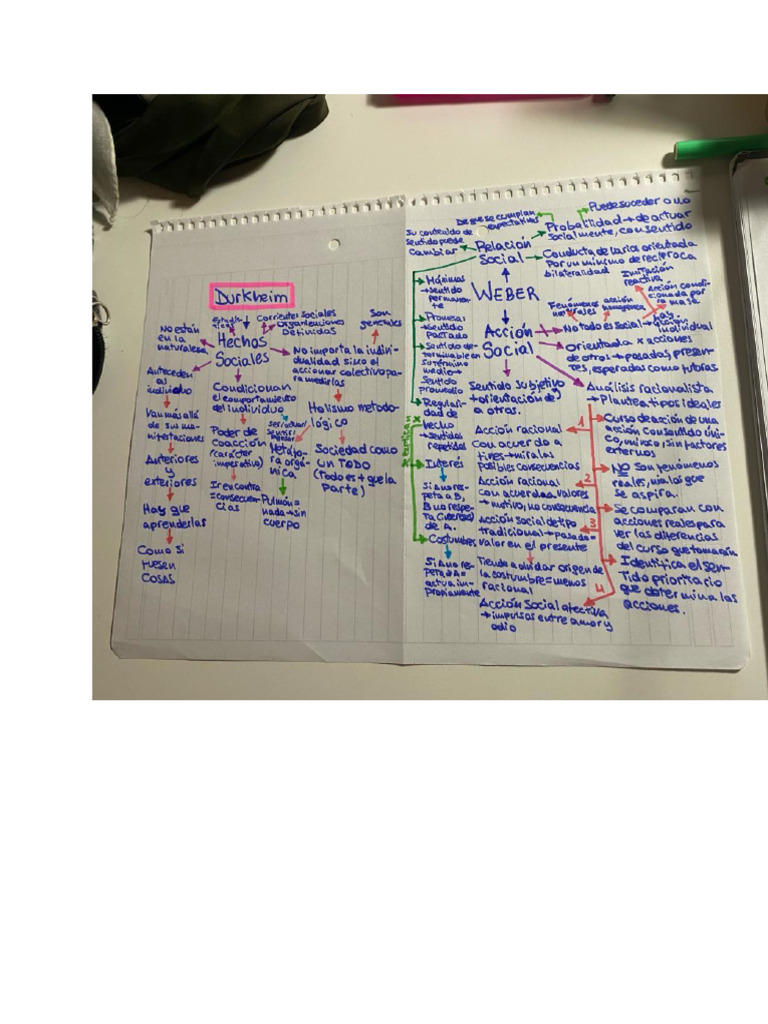 Durkheim
Estadís-
ticas
Corrientes sociales
Organizaciones
Definidas
Son
generales
No están
en la
naturaleza
Hechos
Sociales
No importa la indivi-
dualidad sino el
accionar colectivo pa-
ra medirlos
Anteceden
al
individuo
Condicionan
el comportamiento
del individuo
Holismo metodo-
lógico
Van más allá
de sus ma-
nifestaciones
Poder de
coacción
(carácter
imperativo)
Metáfo-
ra orgá-
nica
Sociedad como
un TODO
(Todo es + que la
Parte)
Anteriores
y
exteriores
Ir en contra
= consecuen-
cias
Pulmón =
nada → sin
cuerpo
Hay que
aprenderlas
Como si
fuesen
COSAS
De que se cumplan
expectativas
Puede suceder o no
Su contenido de
sentido puede
Cambiar
Relación
Social
Probabilidad → de actuar
socialmente, con sentido
Conducta de varios orientada
por un mínimo de recíproca
bilateralidad
Máximas
→ sentido
permanente
WEBER
Imitación
reactiva
Acción condi-
cionada por
la masa
Fenómenos
acción
homogénea
Promesas
→ sentido
Pactado
Acción
Social
No todo es social →
individual
Orientada x acciones
de otros → pasadas, presen-
tes, esperadas como futuras
Sentido de-
terminable en
su término
medio →
sentido
promedio
Sentido subjetivo
+ orientación de/
a otros.
Análisis racionalista
→ Plantea tipos ideales
Regulari-
dad de
hecho
→ sentidos
repetidos
1
Acción racional
con acuerdo a
fines → mira las
posibles consecuencias
Curso de acción de una
acción con sentido úni-
co, mismo, sin factores
externos
Interés
2
Acción racional
con acuerdo a valores
→ motivo, no consecuencia
NO son fenómenos
reales, sino los que
se aspira.
Si A no res-
peta a B,
B no respe-
ta (intereses)
de A.
3
Acción social de tipo
tradicional → pasado =
valor en el presente
Se comparan con
acciones reales para
ver las diferencias
del curso que tomarán
Costumbres
Si A no res-
peta a A =
actúa im-
propiamente
Tiende a olvidar origen de
la costumbre = menos
racional
Identifica el sen-
tido prioritario
que determina las
acciones.
4
Acción Social afectiva
→ impulsos entre amor y
odio